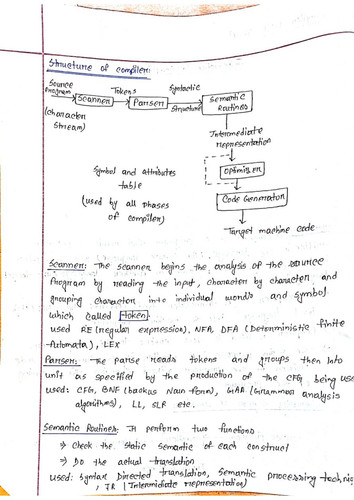 Structure of compiler:
Source Program
(character Stream)
Scanner
Tokens
Parser
Syntactic Structure
Semantic Routines
Intermediate representation
Symbol and attributes
table
(used by all phases
of compiler)
Optimizer
Code Generator
Target machine code
Scanner: The scanner begins the analysis of the source
Program by reading the input, character by character and
grouping character into individual words and symbol
which called token.
used RE (regular expression), NFA, DFA (Deterministic finite
Automata), LEX
Parser: The parse reads tokens and groups then into
unit as specified by the production of the CFG being use
used: CFG, BNF (backus Naun form), GAA (Grammar analysis
algorithms), LL, SLR etc.
Semantic Routines: It perform two functions
⇒ Check the static semantic of each construct
⇒ Do the actual translation.
Used: Syntax Directed translation, Semantic processing techni
IR (Intermidiate representation)